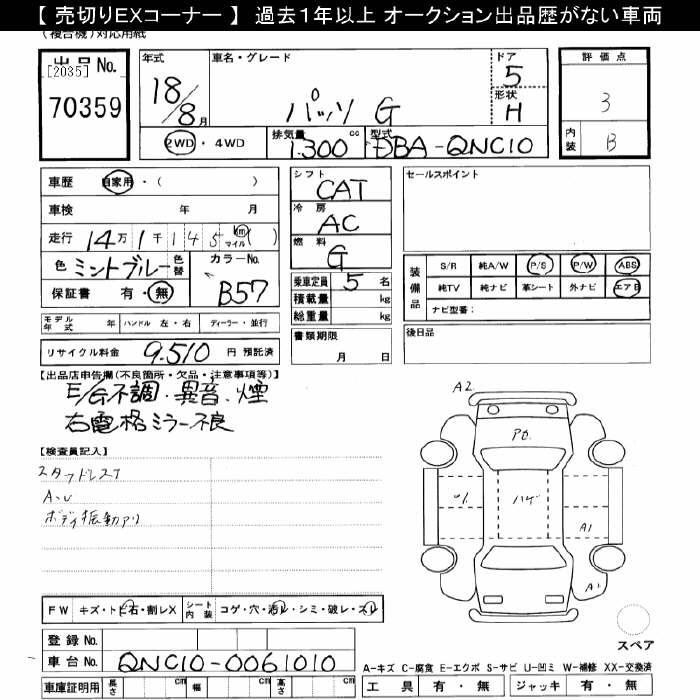 【 売切りEXコーナー 】 過去1年以上 オークション出品歴がない車両
(複合機)対応用紙
出品 No.
[2035]
70359
年式 18/8月
車名・グレード パッソ G
ドア 5
形状 H
評価点 3
内装 B
2WD ・ 4WD
排気量 1.300 cc
型式 DBA-QNC10
車歴 自家用・( )
車検 年 月
走行 14万1千145 km マイル ( )
色 ミントブルー 色替
カラーNo. B57
保証書 有・無
シフト CAT
冷房 AC
燃料 G
乗車定員 5 名
積載量 kg
総重量 kg
書類期限
月 日
セールスポイント
装備品
S/R 純A/W P/S P/W ABS
純TV 純ナビ 革シート 外ナビ エアB
ナビ型番:
後日品
モデル年式 年 ハンドル 左・右 ディーラー・並行
リサイクル料金 9.510 円 預託済
【出品店申告欄(不良箇所・欠品・注意事項等)】
E/G不調・異音・煙
右電格ミラー不良
【検査員記入】
スタッドレス7
A・U
ボディ振動アリ
A2
ハゲ
A1
FW キズ・トビ石・割レX
シート内装 コゲ・穴・汚レ・シミ・破レ・スレ
登録 No.
車台 No. QNC10-0061010
車庫証明用 長さ cm 幅 cm 高さ cm
スペア
A-キズ C-腐食 E-エクボ S-サビ U-凹ミ W-補修 XX-交換済
工具 有・無 ジャッキ 有・無